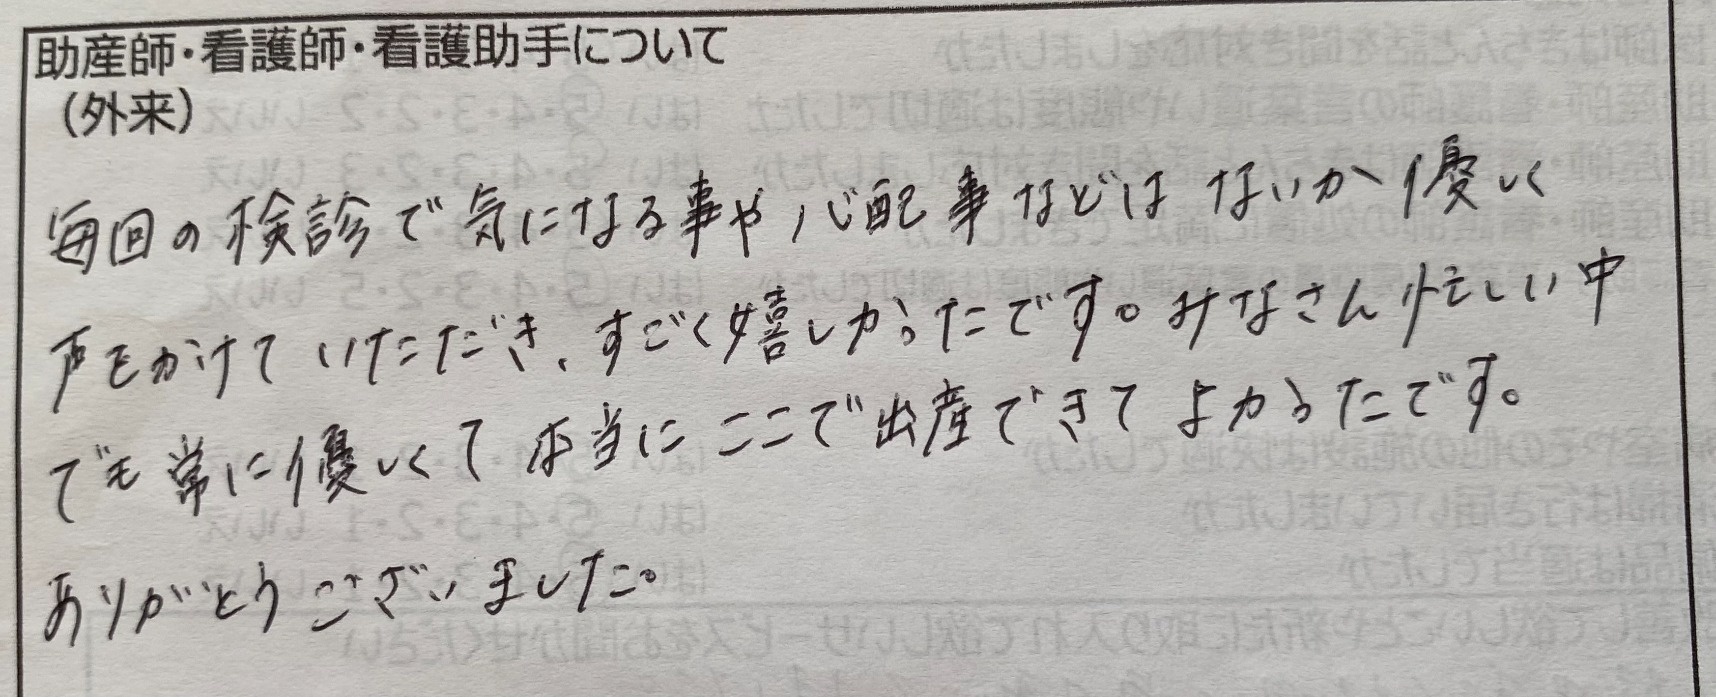 助産師・看護師・看護助手について
（外来）
毎回の検診で気になる事や心配事などはないか優しく
声をかけていただき、すごく嬉しかったです。みなさん忙しい中
でも常に優しくて本当にここで出産できてよかったです。
ありがとうございました。